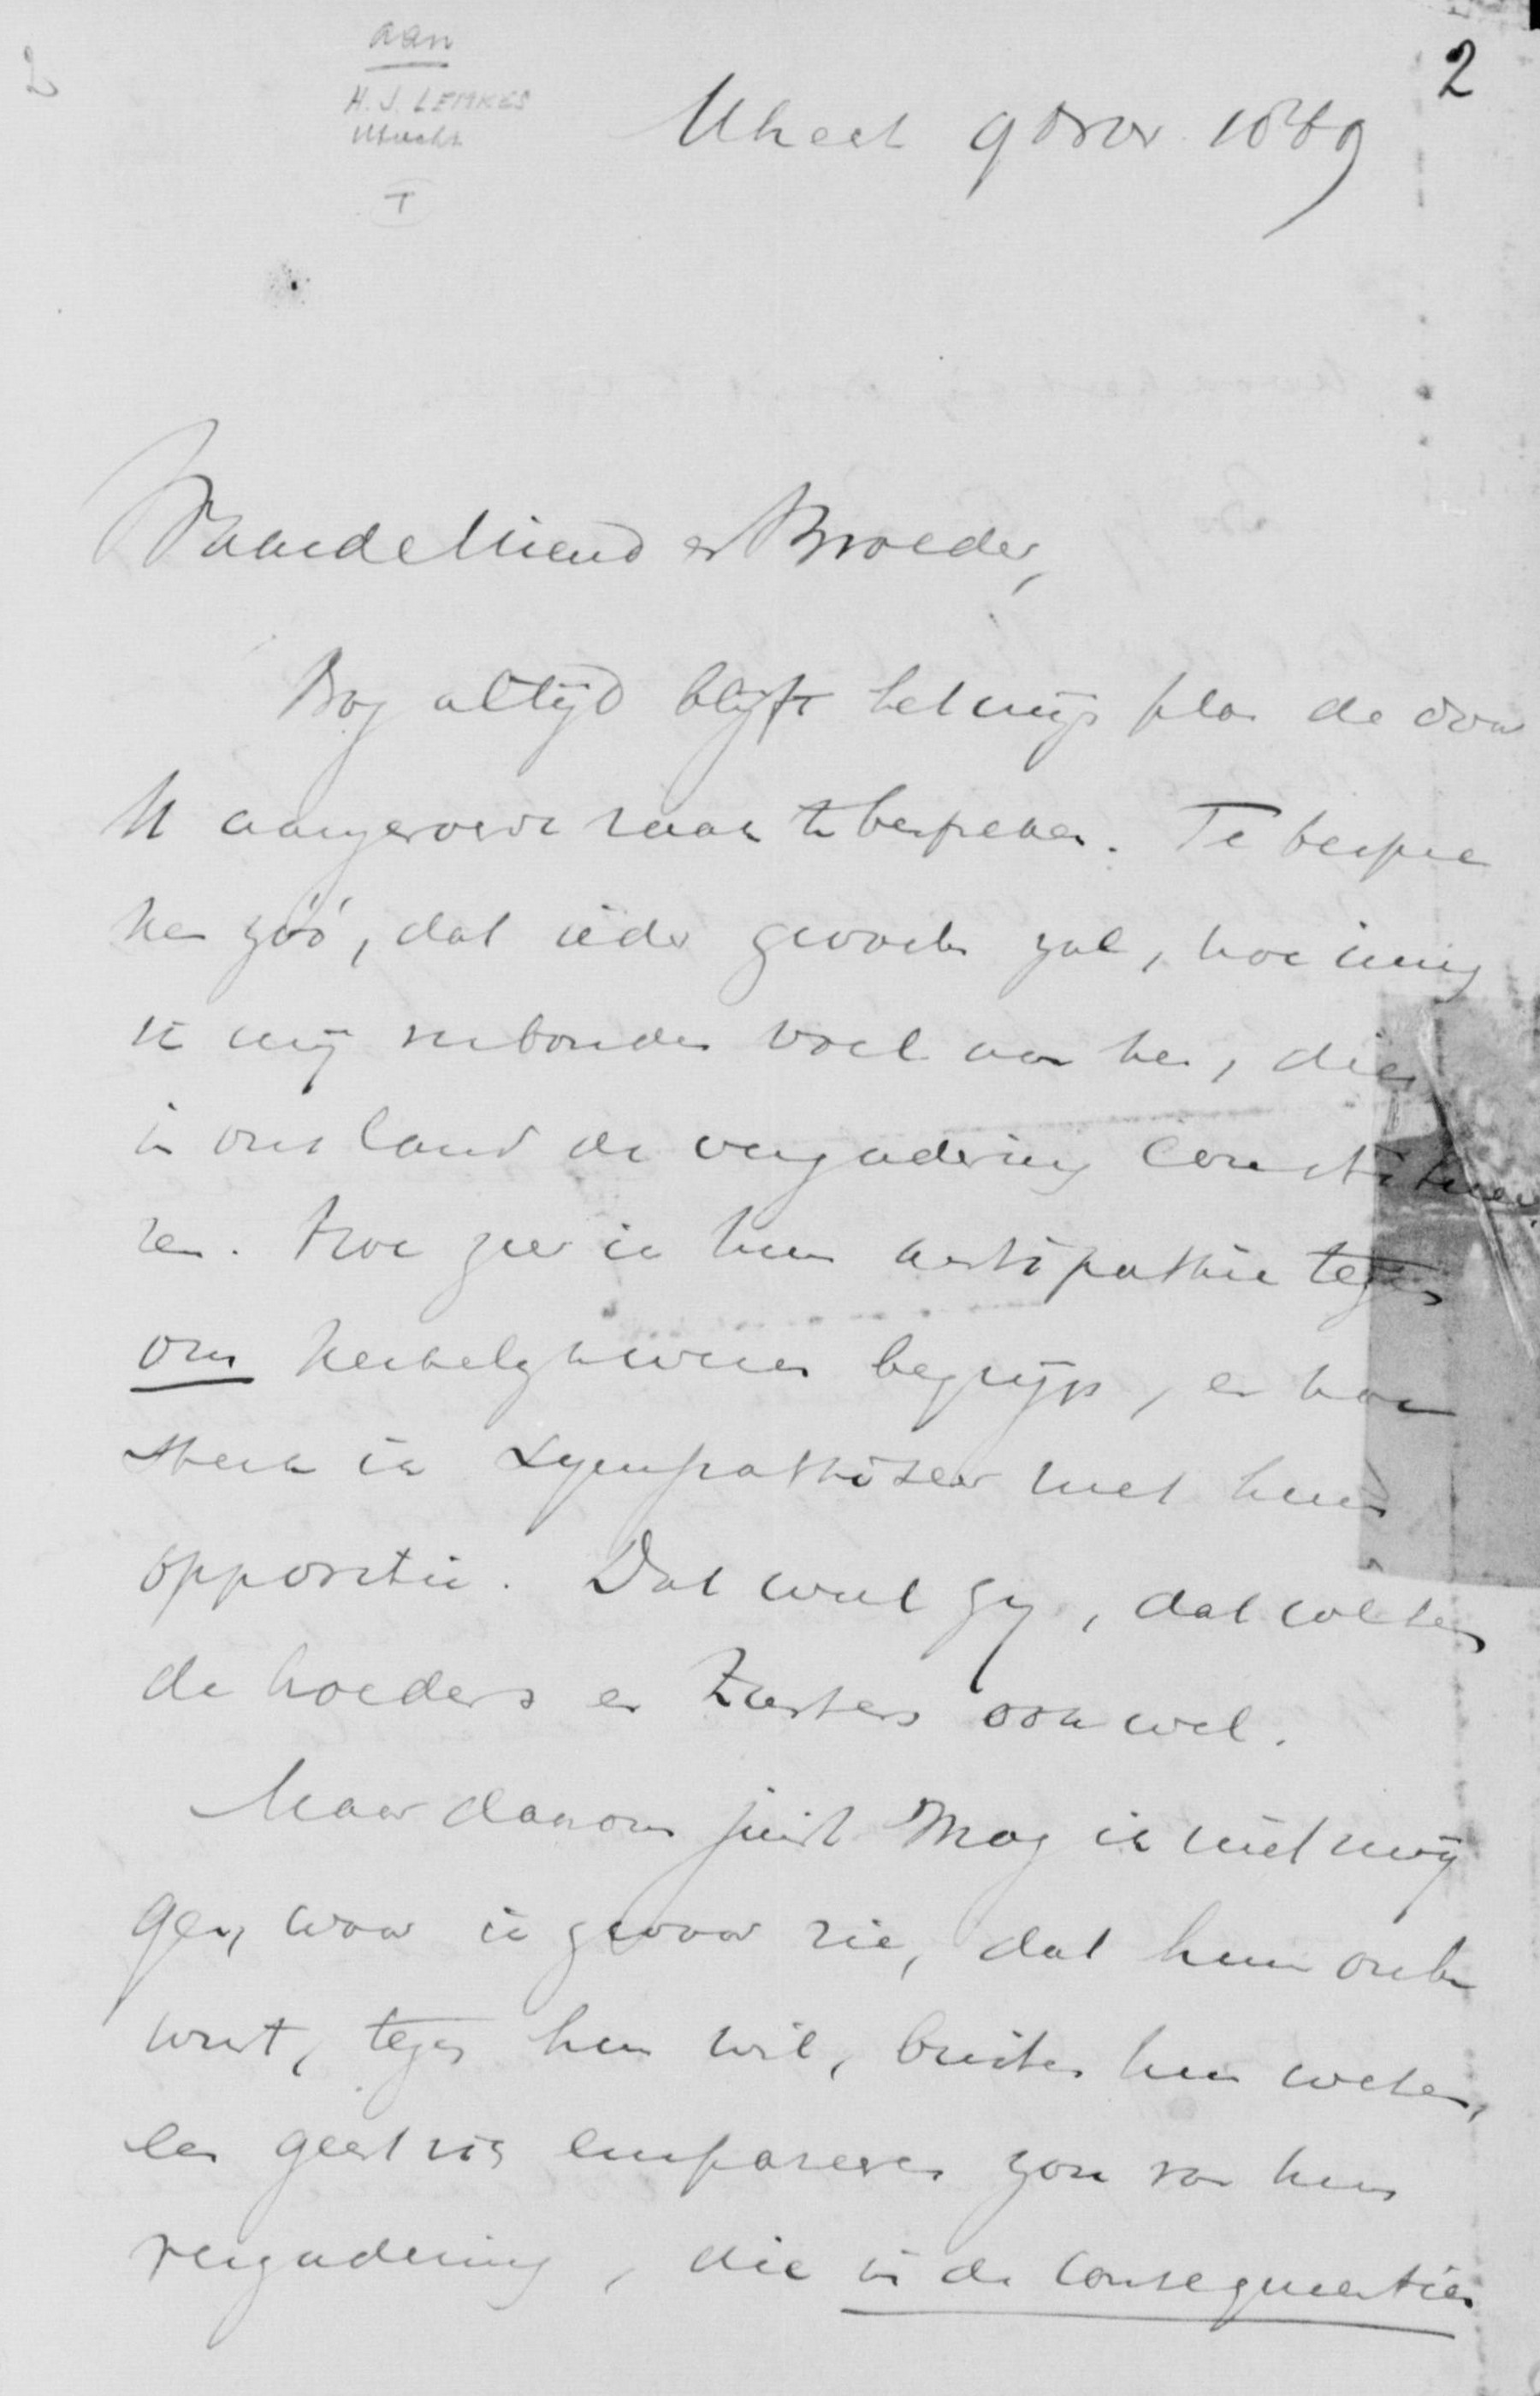 2
aan
H. J. LEMKES
Utrecht
I
2
Utrecht 9 Nov 1889
Waarde Vriend en Broeder,
Nog altijd blijft het mijn plan de door
U aangeroerde zaak te bespreken. Te bespre
ken zóó, dat ieder gevoelen zal, hoe innig
ik mij verbonden voel aan hen, die
in ons land de vergadering constitueer
en. Hoe zeer ik hun antipathie tegen
ons kerkelijk wezen begrijp, en hoe
sterk ik sympathiseer met hun
oppositie. Dat weet gij, dat weten
de broeders en Zusters ook wel.
Maar daarom juist mag ik niet zwij
gen, waar ik gevaar zie, dat hun onbe
wust, tegen hun wil, buiten hun weten,
een geest zich empareren zou van hun
vergadering, die in de consequentien